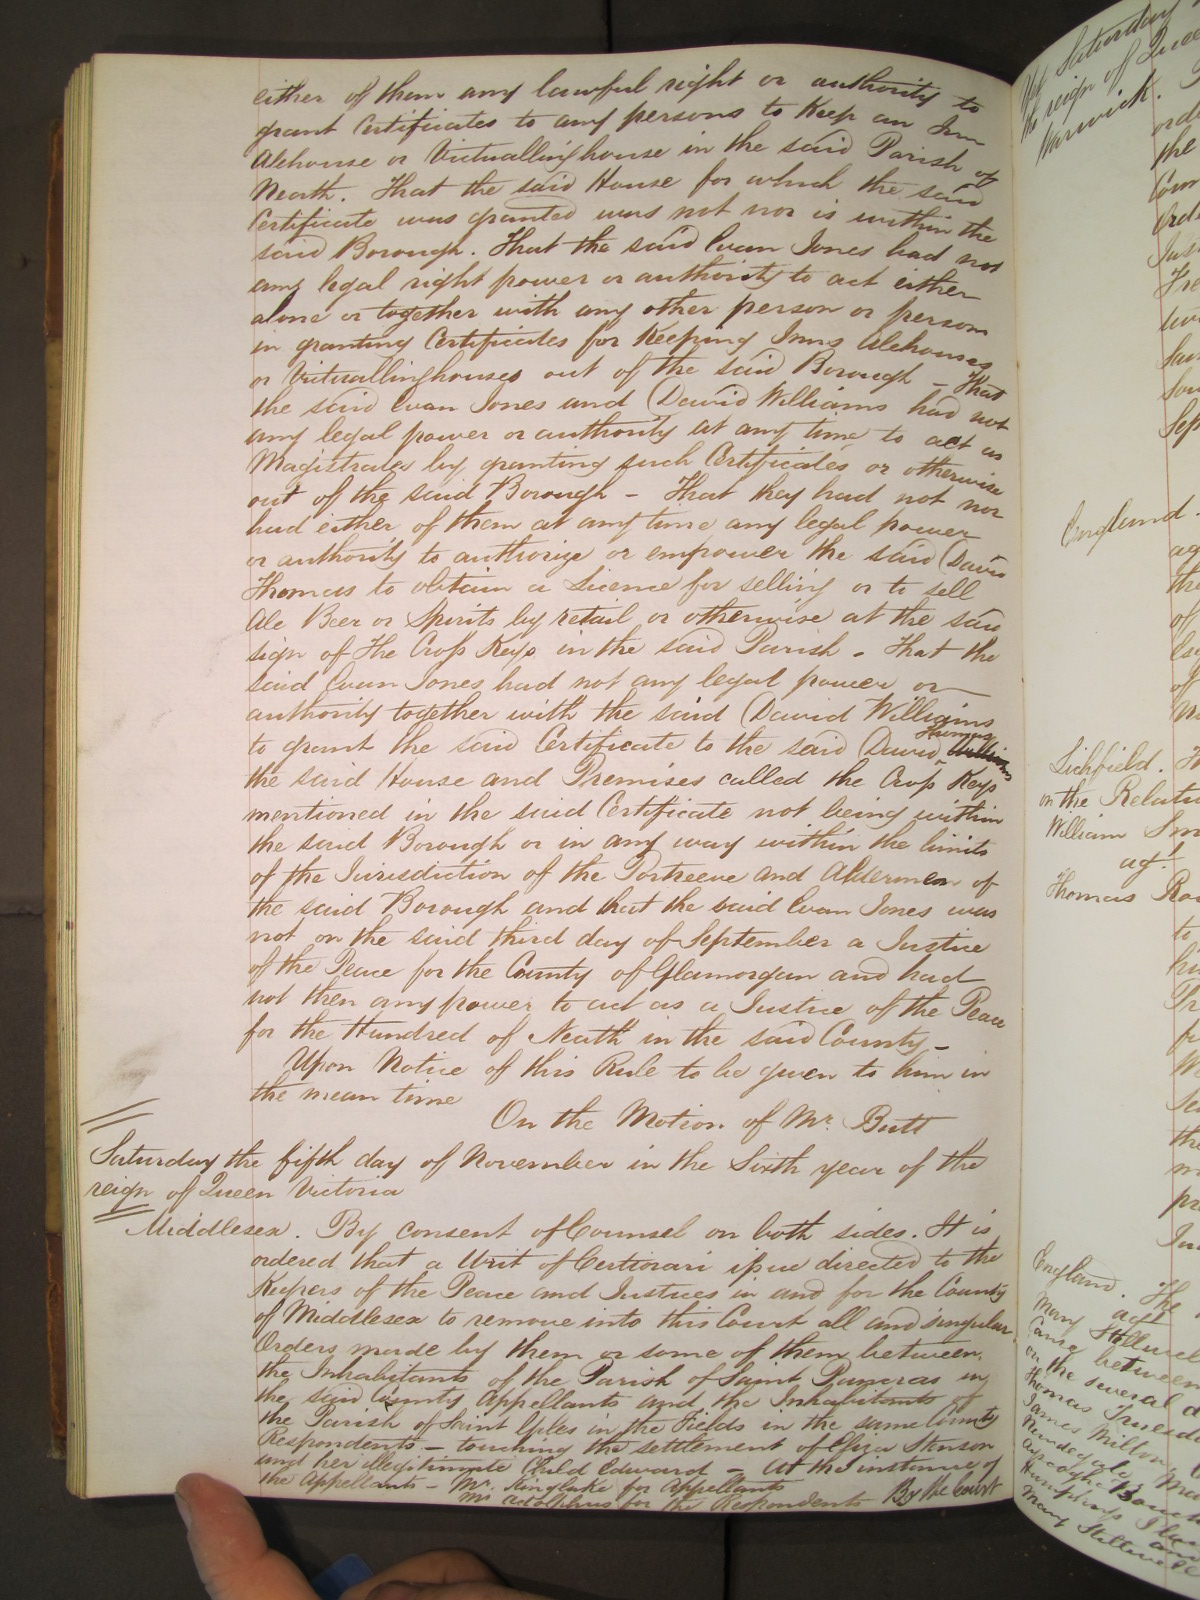 either of them any lawful right or authority to
grant Certificates to any persons to Keep an Inn
Alehouse or Victuallinghouse in the said Parish of
Neath. That the said House for which the said
Certificate was granted was not nor is within the
said Borough. That the said Evan Jones had not
any legal right power or authority to act either
alone or together with any other person or persons
in granting Certificates for Keeping Inns Alehouses
or Victuallinghouses out of the said Borough – That
the said Evan Jones and David Williams had not
any legal power or authority at any time to act as
Magistrates by granting such Certificates or otherwise
out of the said Borough – That they had not nor
had either of them at any time any legal power
or authority to authorize or empower the said David
Thomas to obtain a Licence for selling or to sell
Ale Beer or Spirits by retail or otherwise at the said
sign of The Cross Keys in the said Parish – That the
said Evan Jones had not any legal power or
authority together with the said David Williams
to grant the said Certificate to the said David Thomas Williams
the said House and Premises called the Cross Keys
mentioned in the said Certificate not being within
the said Borough or in any way within the limits
of the Jurisdiction of the Portreeve and Aldermen of
the said Borough and that the said Evan Jones was
not on the said third day of September a Justice
of the Peace for the County of Glamorgan and had
not then any power to act as a Justice of the Peace
for the Hundred of Neath in the said County –
Upon Notice of this Rule to be given to him in
the mean time
On the Motion of Mr. Butt
Saturday the fifth day of November in the Sixth year of the
reign of Queen Victoria
Middlesex. By consent of Counsel on both sides. It is
ordered that a Writ of Certiorari issue directed to the
Keepers of the Peace and Justices in and for the County
of Middlesex to remove into this Court all and singular
Orders made by them or some of them between
the Inhabitants of the Parish of Saint Pancras in
the said County Appellants and the Inhabitants of
the Parish of Saint Giles in the Fields in the same County
Respondents – touching the settlement of Eliza Stenson
and her illegitimate Child Edward – At the instance of
the Appellants – Mr. Kinglake for Appellants
Mr Adolphus for the Respondents By the Court
Saturday
the reign of Quee
Warwick.
the
England.
ag
the
of
Lichfield.
on the Relati
William
agt.
Thomas
to
the
England. The
agt
Mary Stillwel
Cause between
on the several d
Thomas Truesda
James Milton
Newdegate
Humphrys
and
Mary Stillwell